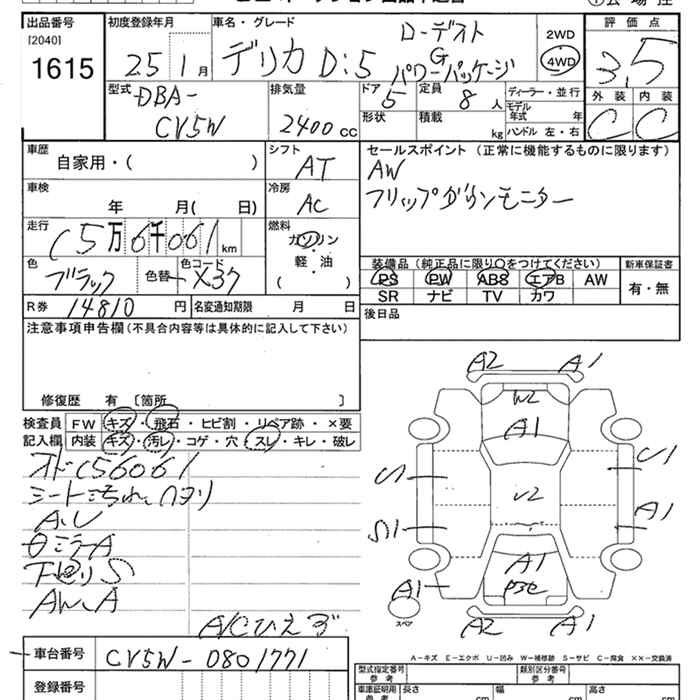 出品番号 初度登録年月 車名・グレード ローデスト 2WD 評価点
[2040] 1615 25 1月 デリカ D:5 G パワーパッケージ 4WD 3.5
型式 DBA- CV5W 排気量 2400cc ドア 5 定員 8人 ディーラー・並行 外装 内装
形状 積載 kg モデル年式 年 ハンドル 左・右 C C
車歴 自家用・( ) シフト AT セールスポイント (正常に機能するものに限ります)
AW
車検 年 月( 日) 冷房 AC フリップダウンモニター
走行 (5万6千061km 燃料 ガソリン
軽・油
( )
色 ブラック 色替 色コード X37 装備品 (純正品に限り○をつけてください) 新車保証書
PS PW ABS エアB AW 有・無
SR ナビ TV カワ
R券 14810円 名変通知期限 月 日 後日品
注意事項申告欄(不具合内容等は具体的に記入して下さい)
修復歴 有 [箇所 ]
検査員 FW キズ・飛石・ヒビ割・リペア跡・×要
記入欄 内装 キズ・汚レ・コゲ・穴・スレ・キレ・破レ
シート汚れ、ヘタリ
A.U
下回りS
A/Cひえず
A2 A1
W2
A1
U1
U2
A1
S1
A1
A1
スペア
A2 A1
A-キズ E-エクボ U-凹み W-補修跡 S-サビ C-腐食 ××-交換済
車台番号 CV5W-0801771
登録番号
型式指定番号 参考 類別区分番号 参考
車庫証明用 参考 長さ cm 幅 cm 高さ cm